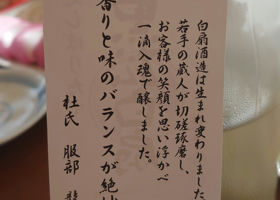 白扇酒造は生まれ変わりました
若手の蔵人が切磋琢磨し、
お客様の笑顔を思い浮かべ
一滴入魂で醸しました。
香りと味のバランスが絶
杜氏 服部